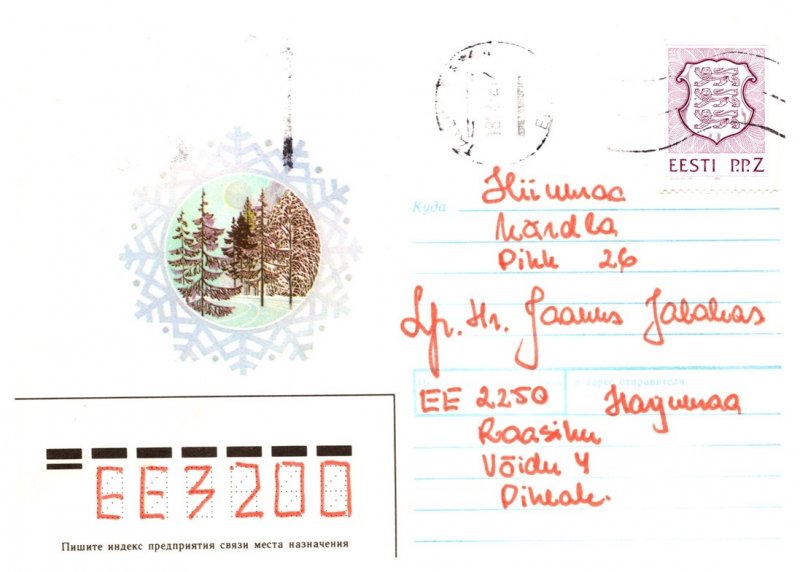 EESTI P.P. Z
Куда
Hiiumaa
Kärdla
Pikk 26
Lp. Hr. Jaanus Jalakas
EE 2250 Harjumaa
Raasiku
Võidu 4
EE3200
Пишите индекс предприятия связи места назначения